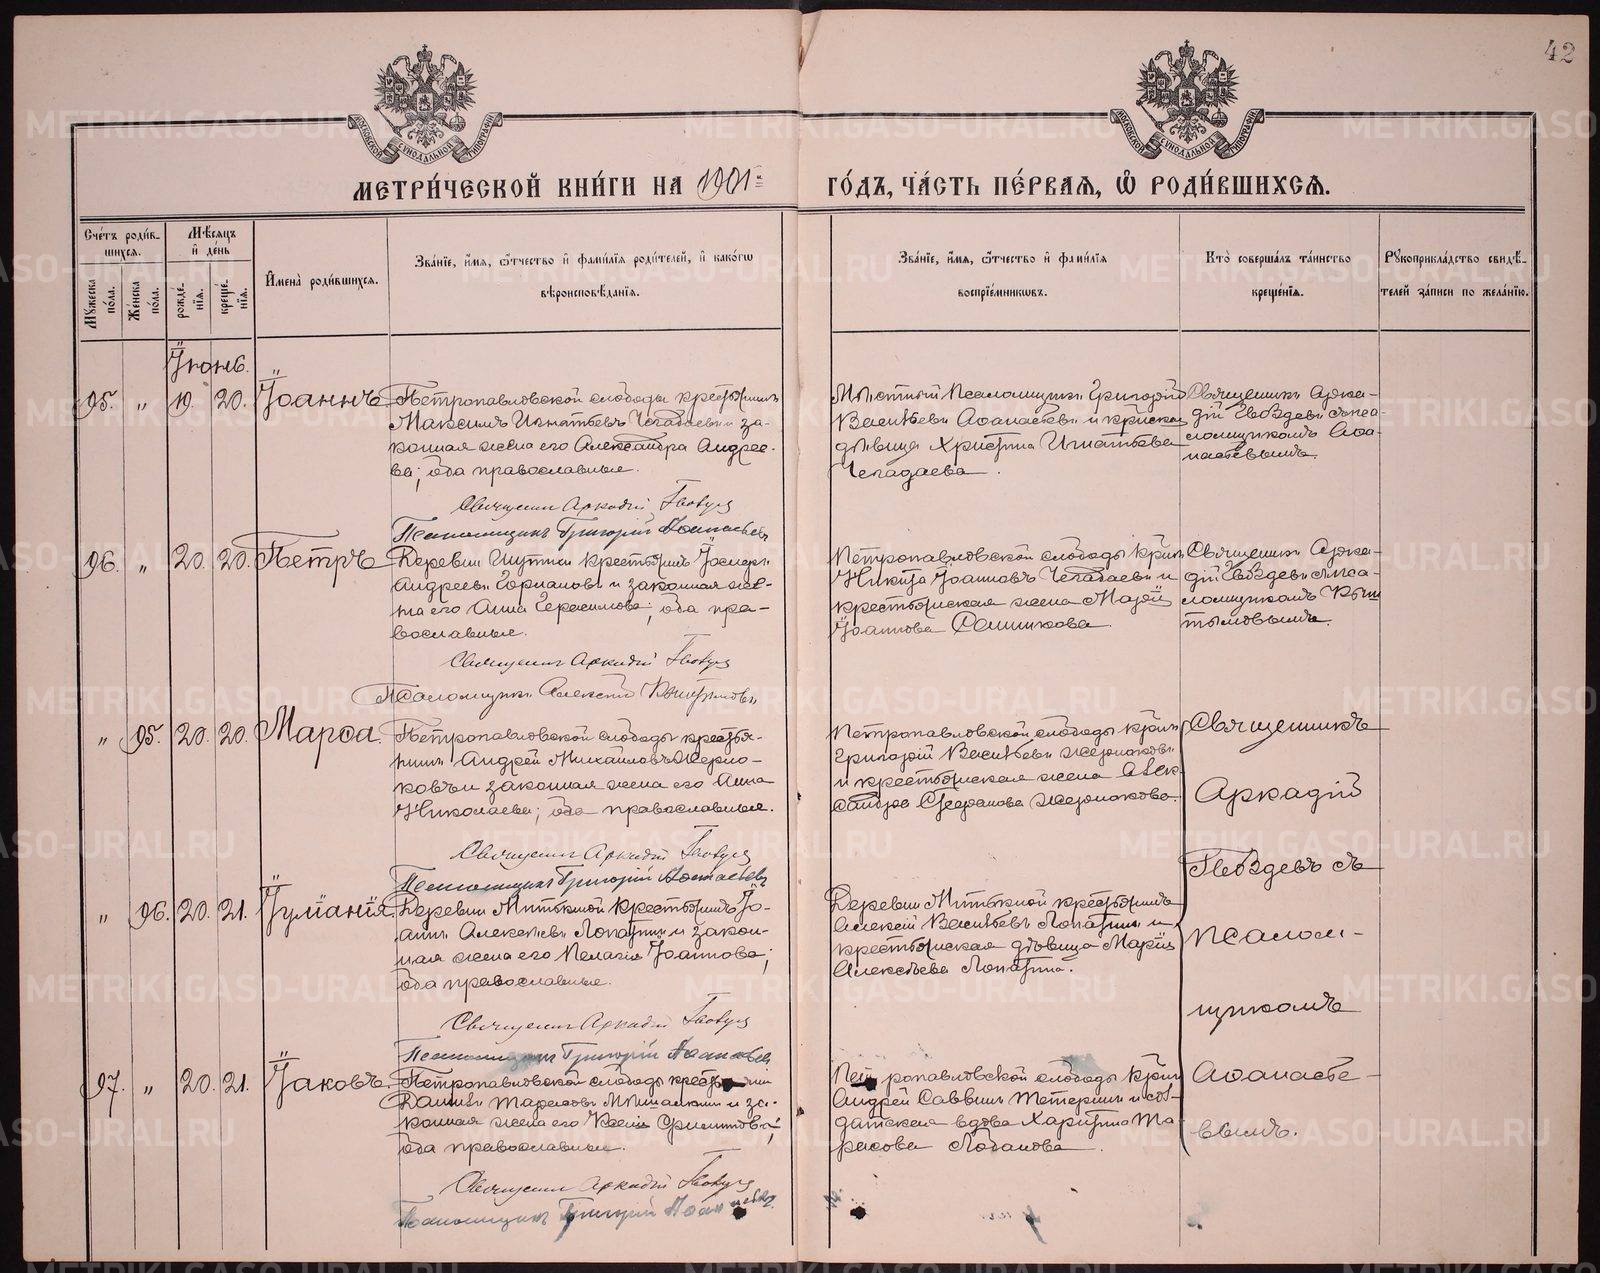 42
МЕТРИ́ЧЕСКОЙ КНИ́ГИ НА 1901
ГО́ДЪ, ЧА́СТЬ ПЕ́РВАѦ, Ѿ РОДИ́ВШИХСѦ.
Сче́тъ роди́в-
шихся.
Мѣ́сяцъ
и҆ де́нь
Му́жеска по́ла.
Же́нска по́ла.
рожде́-
нїя.
креще́-
нїя.
И҆мена̀ роди́вшихся.
Зва́нїе, и҆́мя, ѻ҆́тчество и҆ фами́лїя роди́телей, и҆ како́гѡ
вѣроисповѣ́данїя.
Зва́нїе, и҆́мя, ѻ҆́тчество и҆ фами́лїя
воспрїе́мникѡвъ.
Кто̀ соверша́лъ та́инство
креще́нїя.
Рꙋкоприкла́дство свидѣ́-
телей за́писи по жела́нїю.
Іюнь.
95. " 19. 20. Іоаннъ
Петропавловской слободы крестьянинъ
Максимъ Игнатьевъ Чегадаевъ и за-
конная жена его Александра Андрее-
ва; оба православные.
Священникъ Аркадій Гвоздевъ
Псаломщикъ Григорій Аѳанасьевъ
Мѣстный Псаломщикъ Григорій
Васильевъ Аѳанасьевъ и крестьян
дѣвица Христина Игнатьева
Чегадаева.
Священникъ Арка-
дій Гвоздевъ съ пса-
ломщикомъ Аѳа-
насьевымъ.
96. " 20. 20. Петръ
Деревни крестьянинъ
Андреевъ и законная же-
на его Анна Герасимова; оба пра-
вославные.
Священникъ Аркадій Гвоздевъ
Псаломщикъ Алексѣй
Петропавловской слободы крин
Никита Іоанновъ Чегадаевъ и
крестьянская жена Марія
Іоаннова
Священникъ Арка-
дій Гвоздевъ съ пса-
ломщикомъ
" 95. 20. 20. Марѳа.
Петропавловской слободы крестья-
нинъ Андрей Михайловъ Жерно-
ковъ и законная жена его Анна
Николаева; оба православные.
Священникъ Аркадій Гвоздевъ
Псаломщикъ Григорій Аѳанасьевъ
Петропавловской слободы крин
Григорій Васильевъ Жерноковъ
и крестьянская жена Алек-
сандра Стефанова Жернокова.
Священникъ
Аркадій
Гвоздевъ съ
псалом-
щикомъ
Аѳанасье-
вымъ.
" 96. 20. 21. Іуліанія.
Деревни Митькиной крестьянинъ Іо-
аннъ Алексѣевъ Лопатинъ и закон-
ная жена его Пелагія Іоаннова;
оба православные.
Священникъ Аркадій Гвоздевъ
Псаломщикъ Григорій Аѳанасьевъ
Деревни Митькиной крестьянинъ
Алексѣй Васильевъ Лопатинъ и
крестьянская дѣвица Марія
Алексѣева Лопатина.
97. " 20. 21. Іаковъ.
Петропавловской слободы
Тарасовъ и за-
конная жена его Ксенія
оба православные.
Священникъ Аркадій Гвоздевъ
Псаломщикъ Григорій Аѳанасьевъ
Петропавловской слободы крин
Андрей Саввинъ Тетеринъ и сол-
датская вдова Харитина Та-
расова Лобанова.